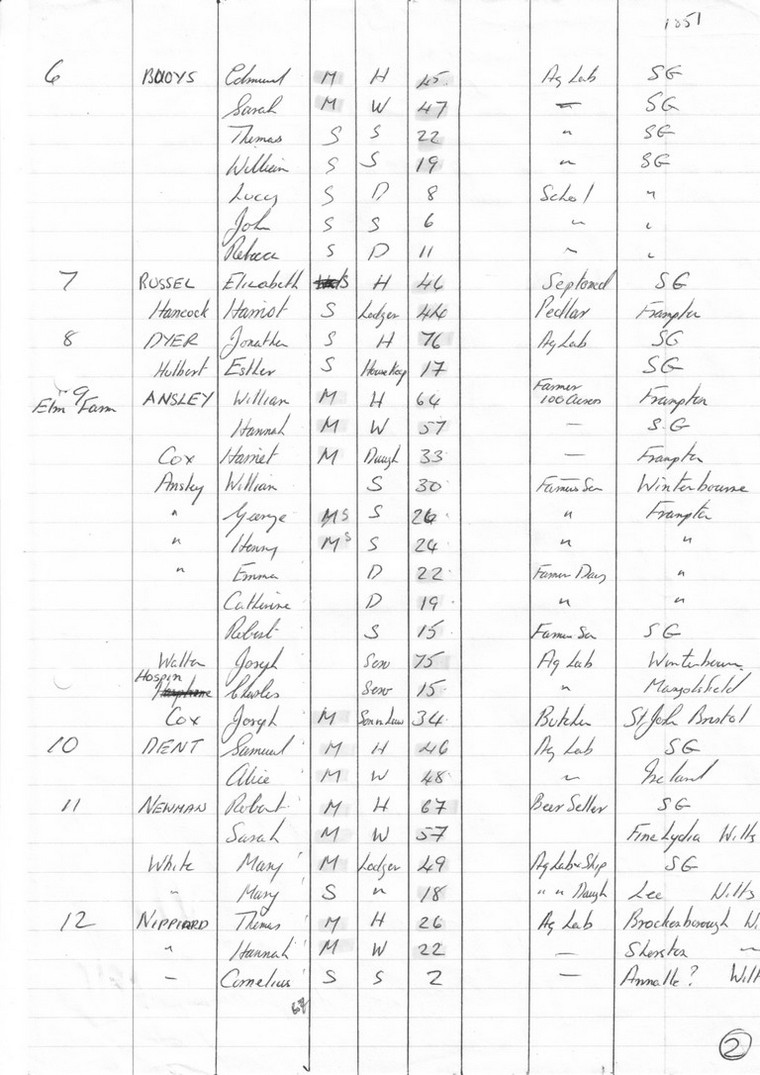 1851
6 BUOYS Edmund M H 45 Ag Lab SG
Sarah M W 47 — SG
Thomas S S 22 " SG
William S S 19 " SG
Lucy S D 8 School "
John S S 6 " "
Rebecca S D 11 " "
7 RUSSEL Elizabeth S H 46 SG
Hancock Harriot S Lodger 44 Pedlar Frampton
8 DYER Jonathan S H 76 Ag Lab SG
Hulbert Esther S House Keep 17 SG
Farmer
9 ANSLEY William M H 64 100 Acres Frampton
Elm Farm
Hannah M W 57 — S.G
Cox Harriet M Daugh 33 — Frampton
Ansley William S 30 Farmers Son Winterbourne
" George M S S 26 " Frampton
" Henry M S S 24 " "
" Emma D 22 Farmer Daug "
Catherine D 19 " "
Robert S 15 Farmer Son SG
Walter Joseph Serv 75 Ag Lab Winterbourn
Hospin
Charles Serv 15 " Mangotsfield
Cox Joseph M Son in Law 34 Butcher St John Bristol
10 DENT Samuel M H 46 Ag Lab SG
Alice M W 48 " Ireland
11 NEWMAN Robert M H 67 Beer Seller SG
Sarah M W 57 Wilts
White Mary M Lodger 49 Ag Lab SG
" Mary S " 18 " " Daugh Lee Wilts
12 NIPPIARD Thomas M H 26 Ag Lab Brockenborough W
" Hannah M W 22 — Sherston "
— Cornelius S S 2 — Annalls? Wilt
67
2